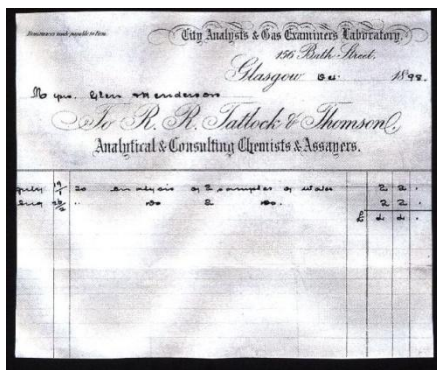 City Analysts & Gas Examiners Laboratory,
156 Bath Street,
Glasgow Oct 1898.
Glen Henderson
To R. R. Tatlock & Thomson,
Analytical & Consulting Chemists & Assayers.
July 19 To analysis of 2 samples of water 2 2 .
Aug " Do 2 Do. 2 2 .
£ 4 4 .